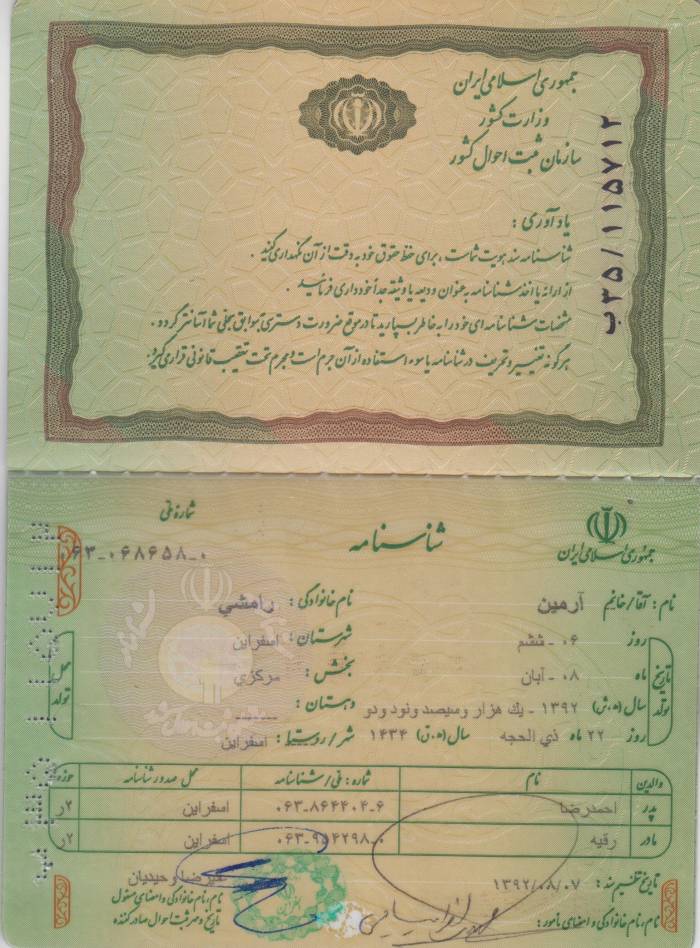 جمهوری اسلامی ایران
وزارت کشور
سازمان ثبت احوال کشور
ب۳۵/۱۱۵۷۱۲
یادآوری :
شناسنامه سند هویت شماست ، برای حفظ حقوق خود به دقت از آن نگهداری کنید .
از ارائه یا اخذ شناسنامه به عنوان ودیعه یا وثیقه جداً خودداری فرمائید .
مشخصات شناسنامه ای خود را به خاطر بسپارید تا در موقع ضرورت دسترسی به سوابق سجلی شما آسانتر گردد .
هرگونه تغییر و تحریف در شناسنامه یا سوء استفاده از آن جرم است و مجرم تحت تعقیب قانونی قرار می گیرد .
جمهوری اسلامی ایران
شناسنامه
شماره ملی
۰۶۳-۰۶۸۶۵۸-۰
نام : آقا/خانم آرمین نام خانوادگی : رامشي
تاریخ تولد
روز ۰۶ - ششم شهرستان : اسفراین
ماه ۰۸ - آبان بخش : مرکزي
سال (ه.ش) ۱۳۹۲ - یك هزار وسیصد ونود ودو دهستان : ------
روز ۲۲ ماه ذي الحجه سال (ه.ق) ۱۴۳۴ شهر/روستا : اسفراین
محل تولد
والدین نام شماره : ملی/شناسنامه محل صدور شناسنامه حوزه
پدر احمدرضا ۰۶۳-۸۶۴۴۰۴-۶ اسفراین ۲ر
مادر رقیه اسفراین ۲ر
تاریخ تنظیم سند : ۱۳۹۲/۰۸/۰۷
نام، نام خانوادگی و امضای مأمور :
وحیدیان
نام، نام خانوادگی و امضای مسئول
تاریخ و مهر ثبت احوال صادرکننده